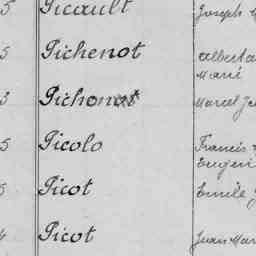 5 Picault Joseph
5 Pichenot Albert
Marie
3 Pichonat Marcel Je
5 Picolo Francis
Eugèn
5 Picot Emile J
4 Picot Jean Mar